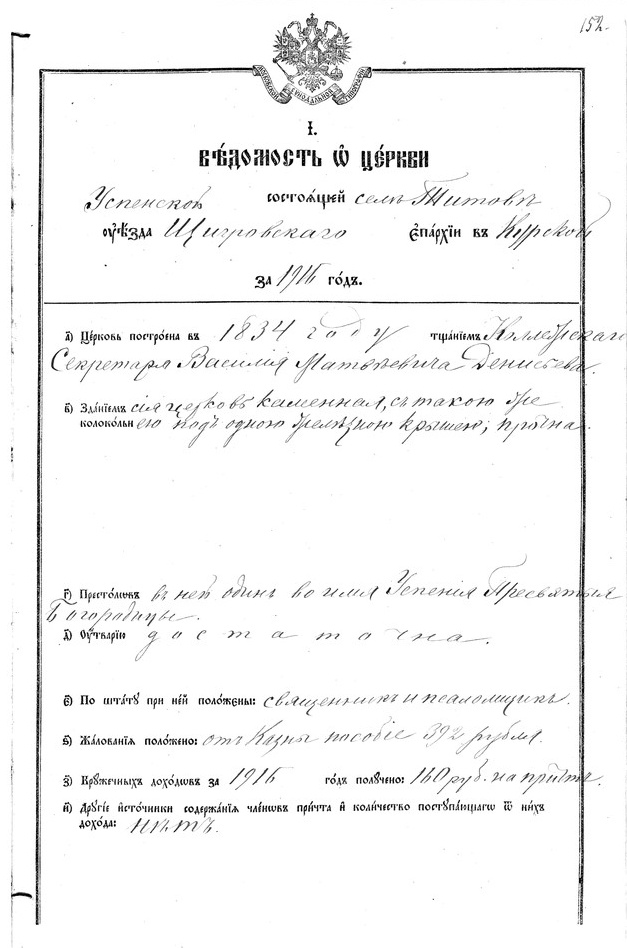 152.
МОСКОВСКОЙ СѴНОДАЛЬНОЙ ТИПОГРАФІИ
І.
ВѢ́ДОМОСТЬ Ѡ҆ ЦЕ́РКВИ
Успенской состоѧ́щей селѣ Титовѣ
оуѣ́зда Щигровскаго є҆па́рхїи въ Курской
за 1916 го́дъ.
а҃) Це́рковь постро́ена въ 1834 году тща́нїемъ Коллежскаго
Секретаря Василія Матвѣевича Денисьева.
в҃) Зда́нїемъ сія церковь каменная, съ такою же
колоко́льнею подъ одною желѣзною крышею; прочна.
г҃) Престо́лѡвъ въ ней одинъ во имя Успенія Пресвятыя
Богородицы.
д҃) Оу҆́тварїю достаточна.
є҃) По шта́ту при не́й поло́жены: священникъ и псаломщикъ.
ѕ҃) Жа́лованїѧ поло́жено: отъ Казны пособіе 392 рубля.
з҃) Крꙋ́жечныхъ дохо́дѡвъ за 1916 го́дъ полꙋ́чено: 160 руб. на причтъ.
и҃) Дрꙋгі́е и҆сто́чники содержа́нїѧ чле́нѡвъ при́чта и҆ коли́чество постꙋпа́ющагѡ ѿ ни́хъ
дохо́да: нѣтъ.